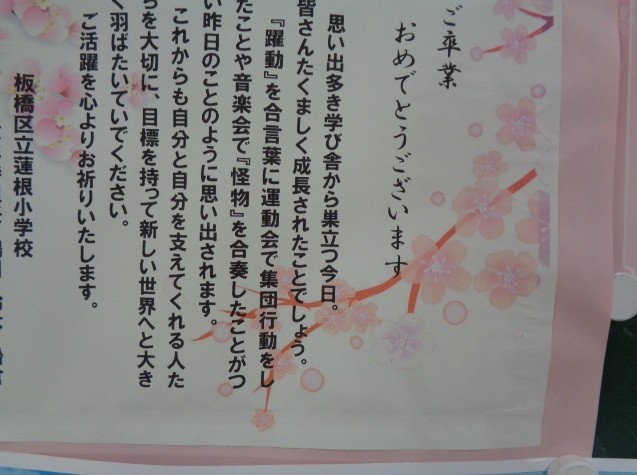 ご卒業
おめでとうございます
思い出多き学び舎から巣立つ今日。
皆さんたくましく成長されたことでしょう。
『躍動』を合言葉に運動会で集団行動をし
たことや音楽会で『怪物』を合奏したことがつ
い昨日のことのように思い出されます。
これからも自分と自分を支えてくれる人た
ちを大切に、目標を持って新しい世界へと大き
く羽ばたいていでください。
ご活躍を心よりお祈りいたします。
板橋区立蓮根小学校